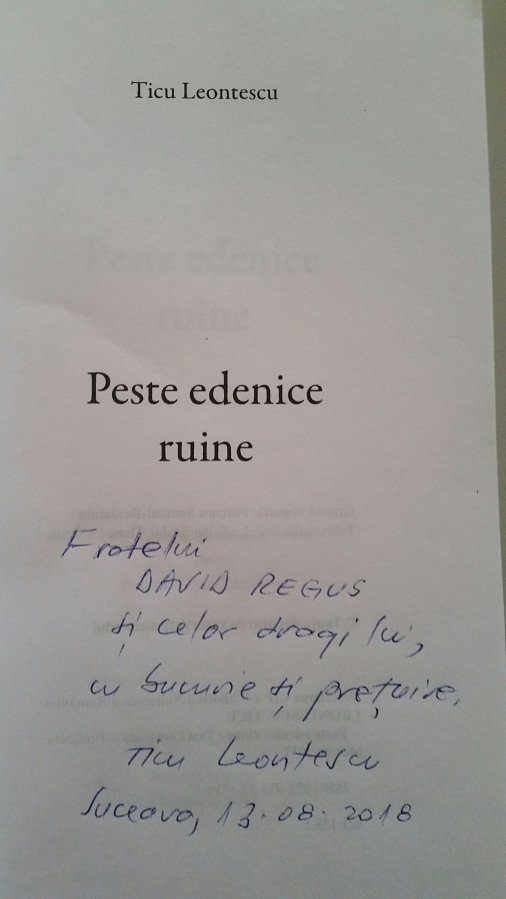 Ticu Leontescu
Peste edenice
ruine
Peste edenice
ruine
Fratelui
DAVID REGUS
și celor dragi lui,
cu bucurie și prețuire,
Ticu Leontescu
Suceava, 13.08.2018